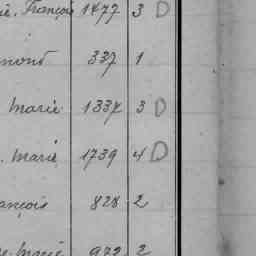 ie. François 1477 3 D
mond 337 1
Marie 1337 3 D
. Marie 1739 4 D
ançois 828 2
e. Marie 972 2